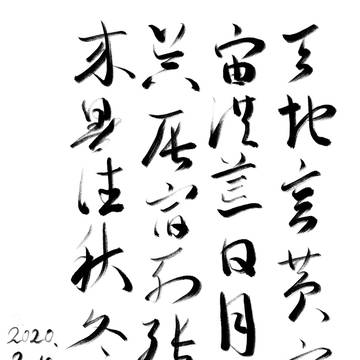 天地玄黄宇
宙洪荒日月
昃辰宿列张
来暑往秋收
2020.